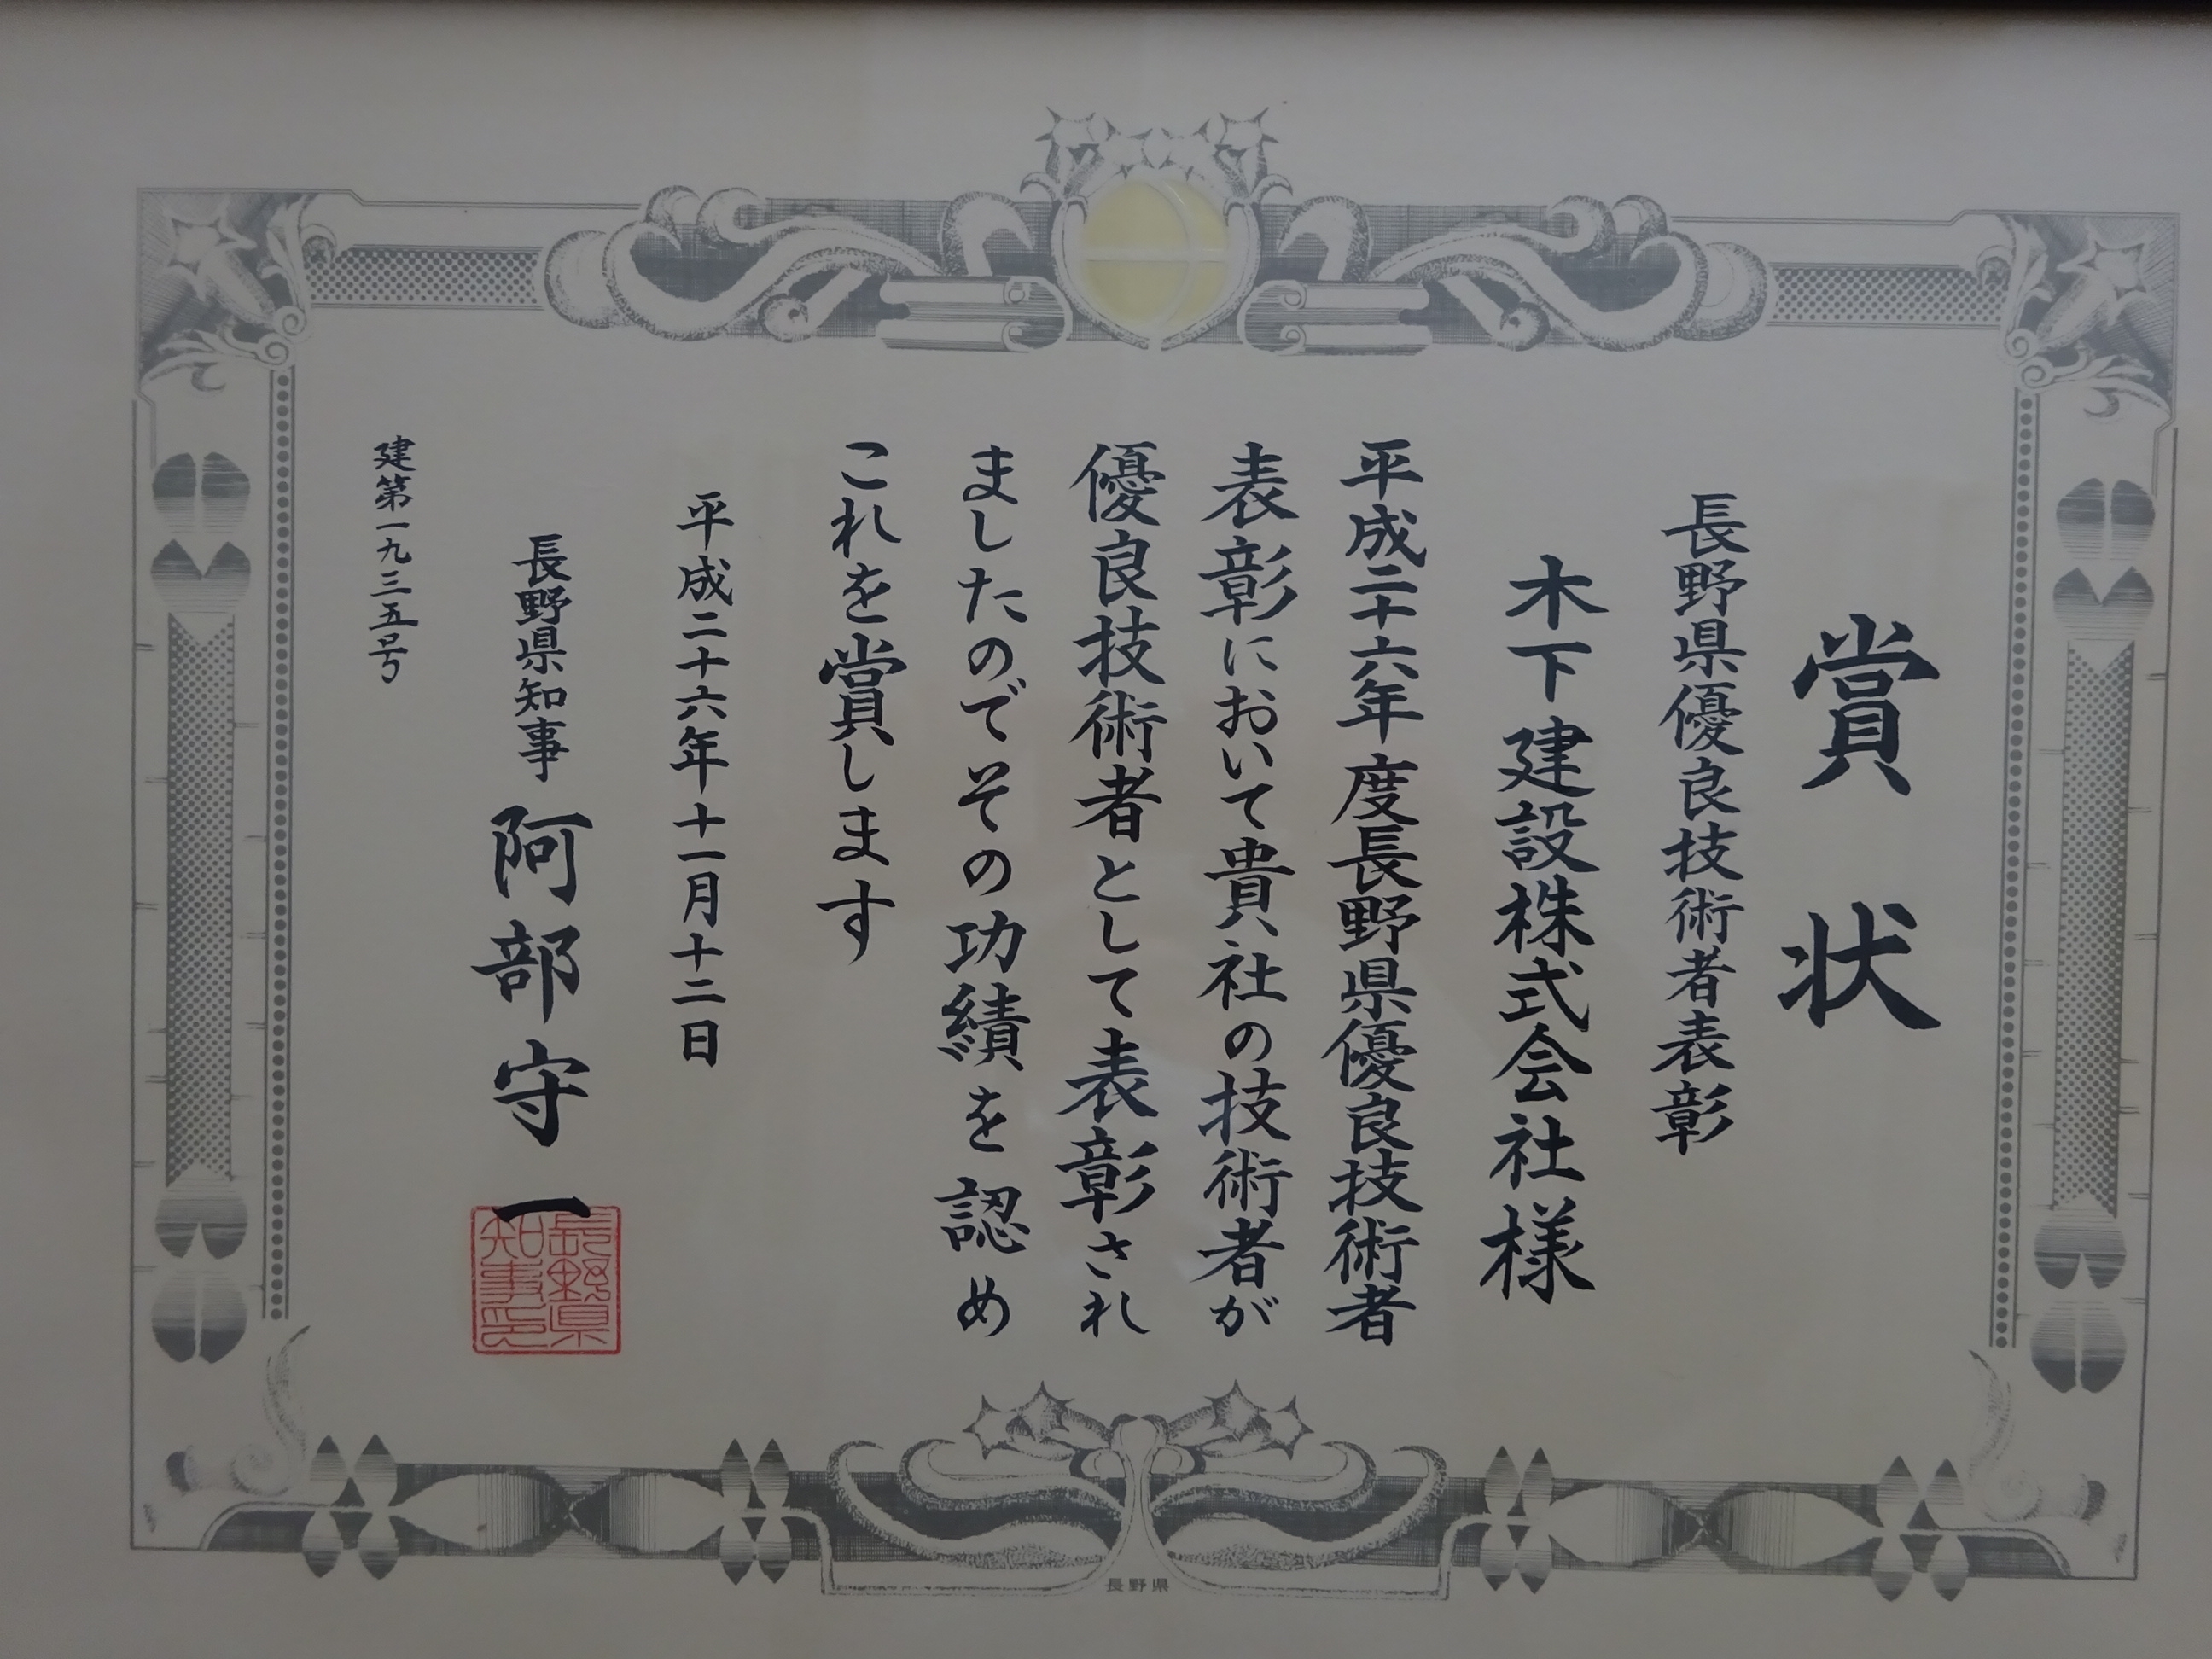 賞状
長野県優良技術者表彰
木下建設株式会社様
平成二十六年度長野県優良技術者
表彰において貴社の技術者が
優良技術者として表彰され
ましたのでその功績を認め
これを賞します
平成二十六年十一月十二日
長野県知事 阿部守一
長野県
知事印
建第一九三五号
長野県